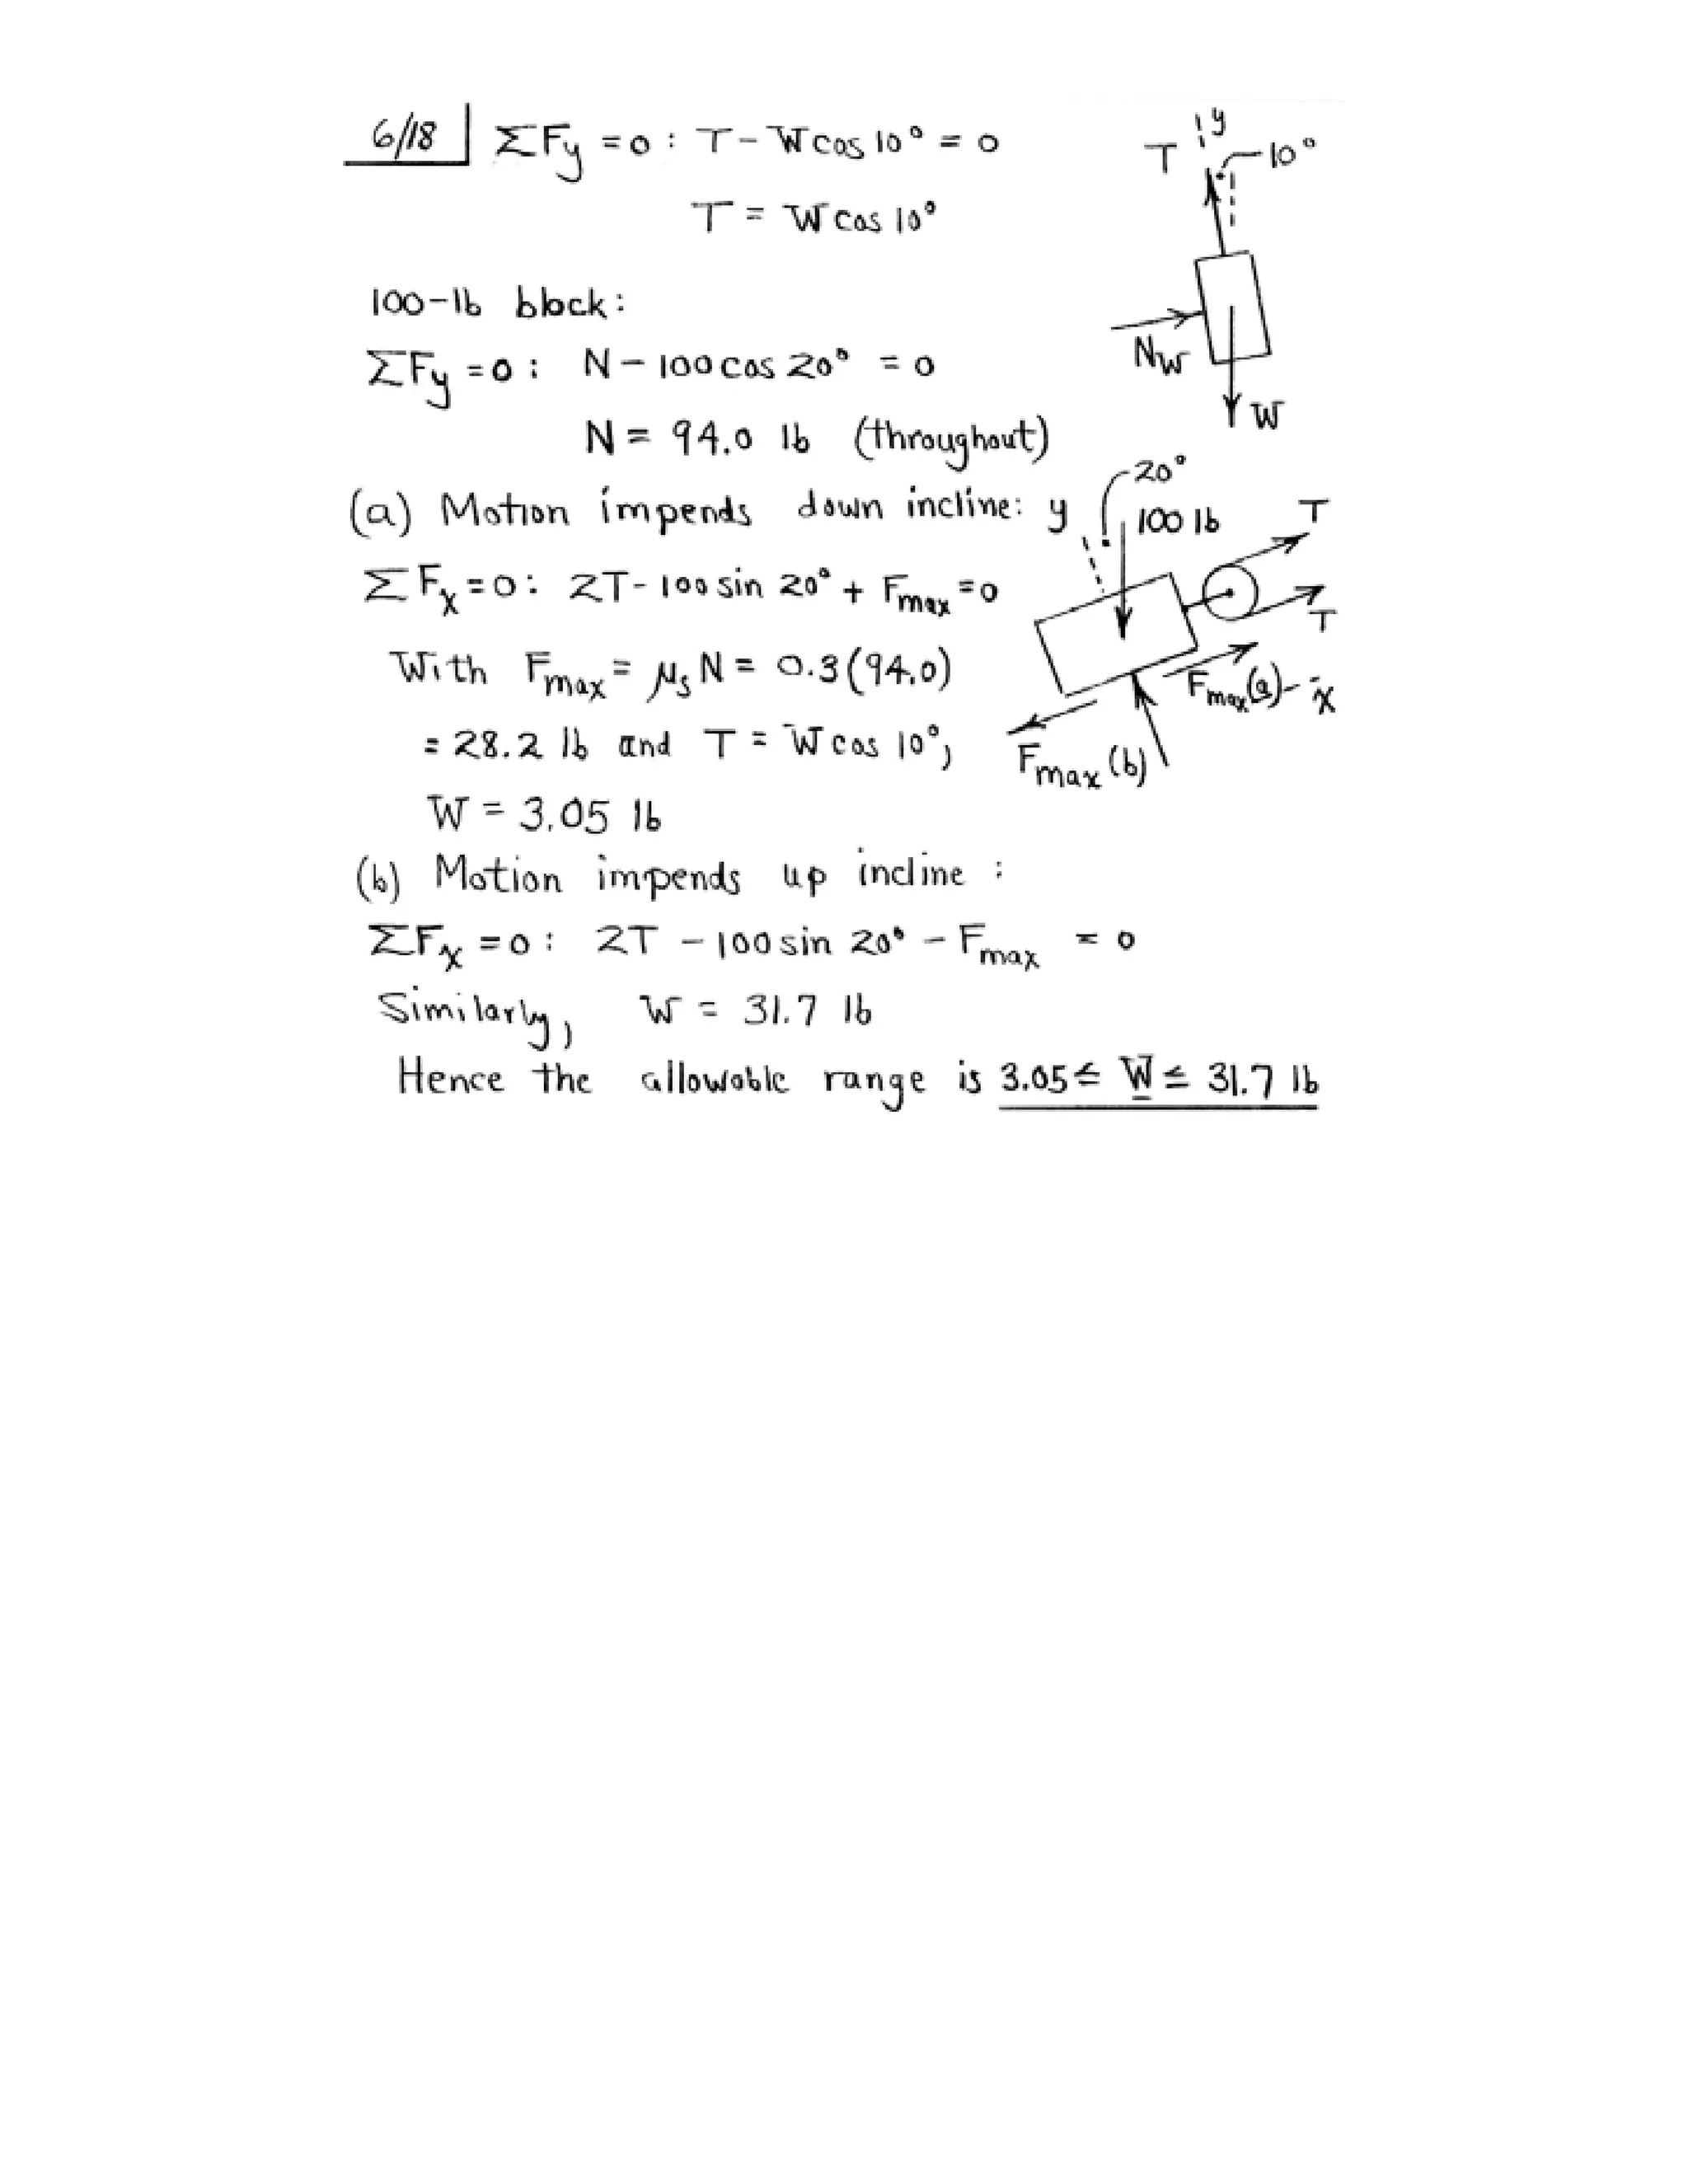 6/18 ΣFy = 0 : T - W cos 10° = 0
T = W cos 10°
100-lb block:
ΣFy = 0 : N - 100 cos 20° = 0
N = 94.0 lb (throughout)
(a) Motion impends down incline:
ΣFx = 0 : 2T - 100 sin 20° + Fmax = 0
With Fmax = μs N = 0.3(94.0)
= 28.2 lb and T = W cos 10°,
W = 3.05 lb
(b) Motion impends up incline :
ΣFx = 0 : 2T - 100 sin 20° - Fmax = 0
Similarly, W = 31.7 lb
Hence the allowable range is 3.05 ≤ W ≤ 31.7 lb
y
T
10°
Nw
W
20°
y
100 lb
T
T
Fmax(a)
x
Fmax(b)